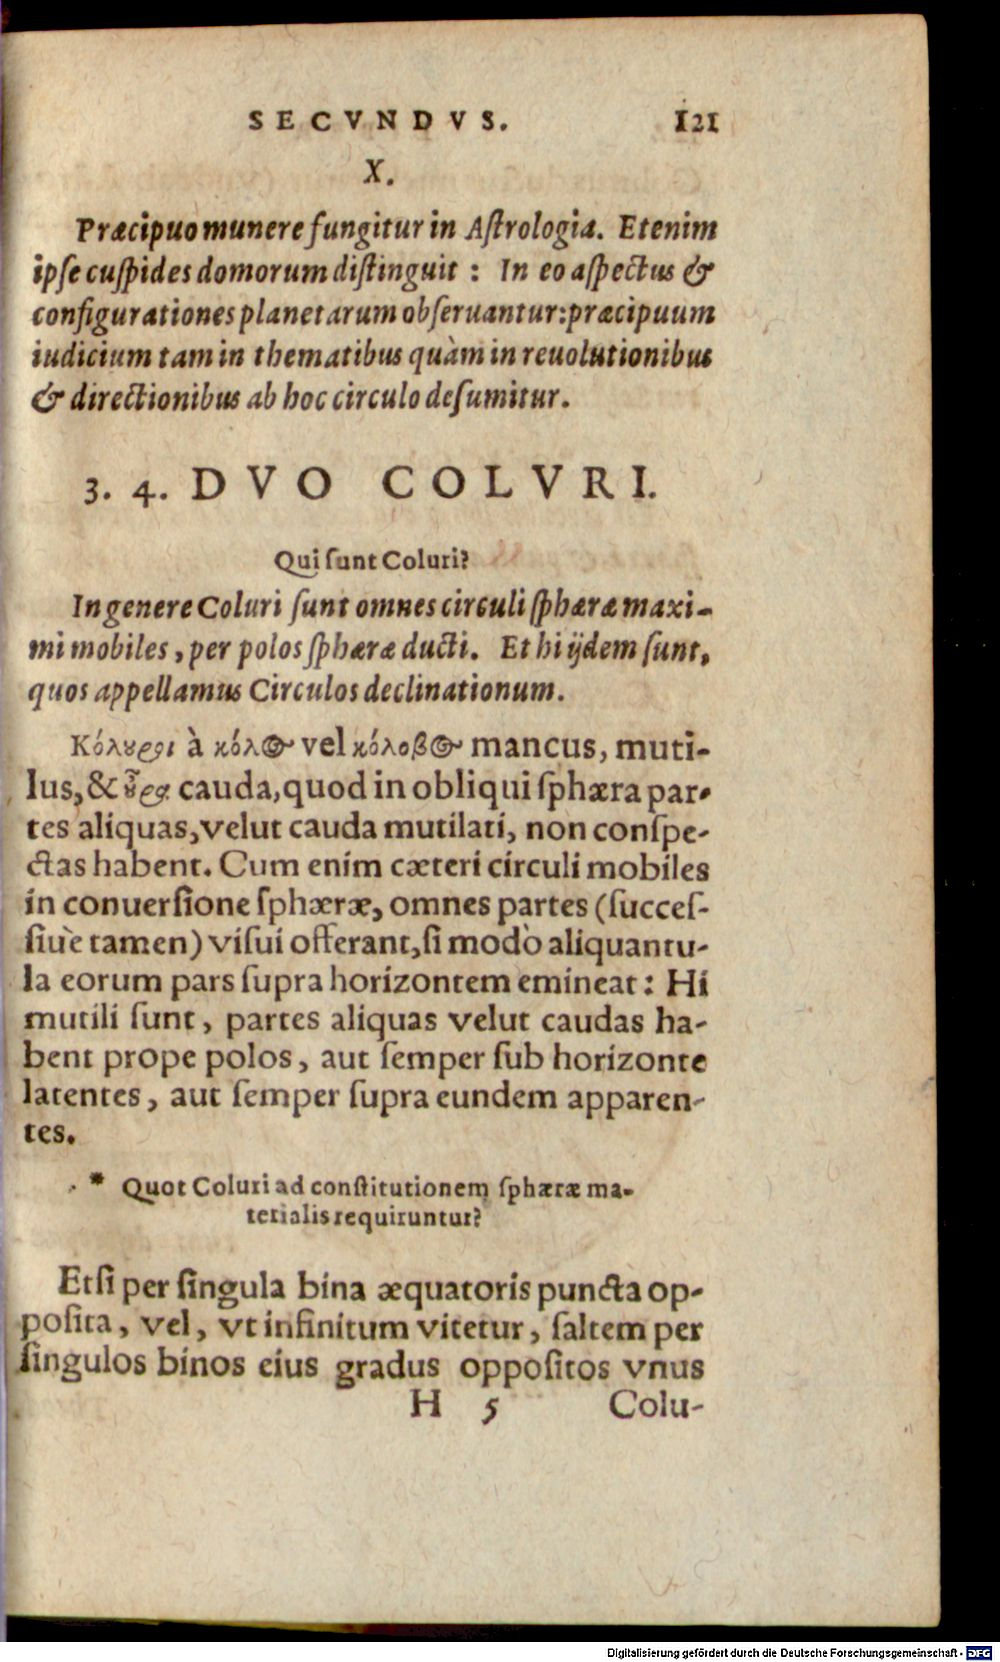 SECVNDVS. 121
X.
Præcipuo munere fungitur in Astrologia. Etenim
ipſe cuſpides domorum diſtinguit : In eo aſpectus &
configurationes planetarum obſeruantur: præcipuum
iudicium tam in thematibus quàm in reuolutionibus
& directionibus ab hoc circulo deſumitur.
3. 4. DVO COLVRI.
Qui ſunt Coluri?
In genere Coluri ſunt omnes circuli ſphæræ maxi-
mi mobiles, per polos ſphæræ ducti. Et hi ijdem ſunt,
quos appellamus Circulos declinationum.
Κόλουροι à κόλος vel κόλοβος mancus, muti-
lus, & οὖρα cauda, quod in obliqui ſphæra par-
tes aliquas, velut cauda mutilati, non conſpe-
ctas habent. Cum enim cæteri circuli mobiles
in conuerſione ſphæræ, omnes partes (ſucceſ-
ſiuè tamen) viſui offerant, ſi modò aliquantu-
la eorum pars ſupra horizontem emineat: Hi
mutili ſunt, partes aliquas velut caudas ha-
bent prope polos, aut ſemper ſub horizonte
latentes, aut ſemper ſupra eundem apparen-
tes.
* Quot Coluri ad conſtitutionem ſphæræ ma-
terialis requiruntur?
Etſi per ſingula bina æquatoris puncta op-
poſita, vel, vt infinitum vitetur, ſaltem per
ſingulos binos eius gradus oppoſitos vnus
H 5 Colu-
Digitalisierung gefördert durch die Deutsche Forschungsgemeinschaft - DFG